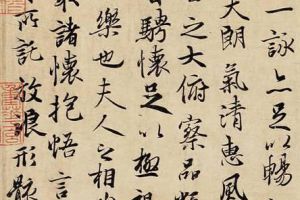 一詠亦足以暢
天朗氣清惠風
之大俯察品類
騁懷足以極視
樂也夫人之相與
取諸懷抱悟言
所託放浪形骸